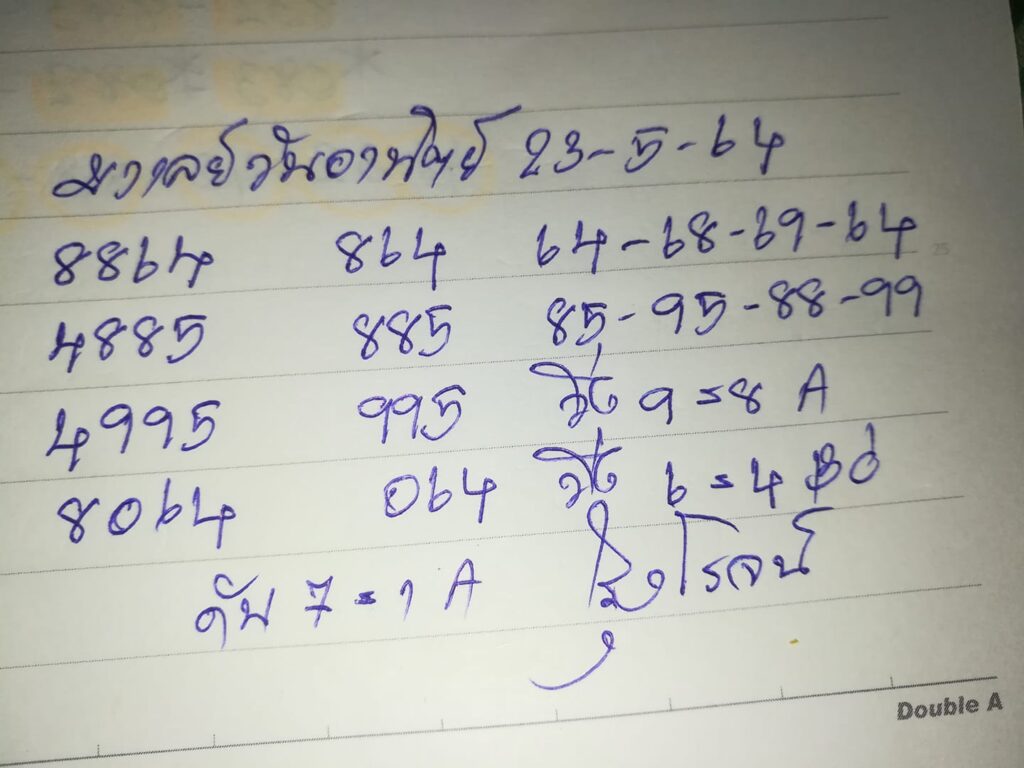 มาเลย์วันอาทิตย์ 23-5-64
8864 864 64-68-69-64
4885 885 85-95-88-99
4995 995 วิ่ง 9=8 A
8064 064 วิ่ง 6=4
ดับ 7=1 A โรจน์
Double A